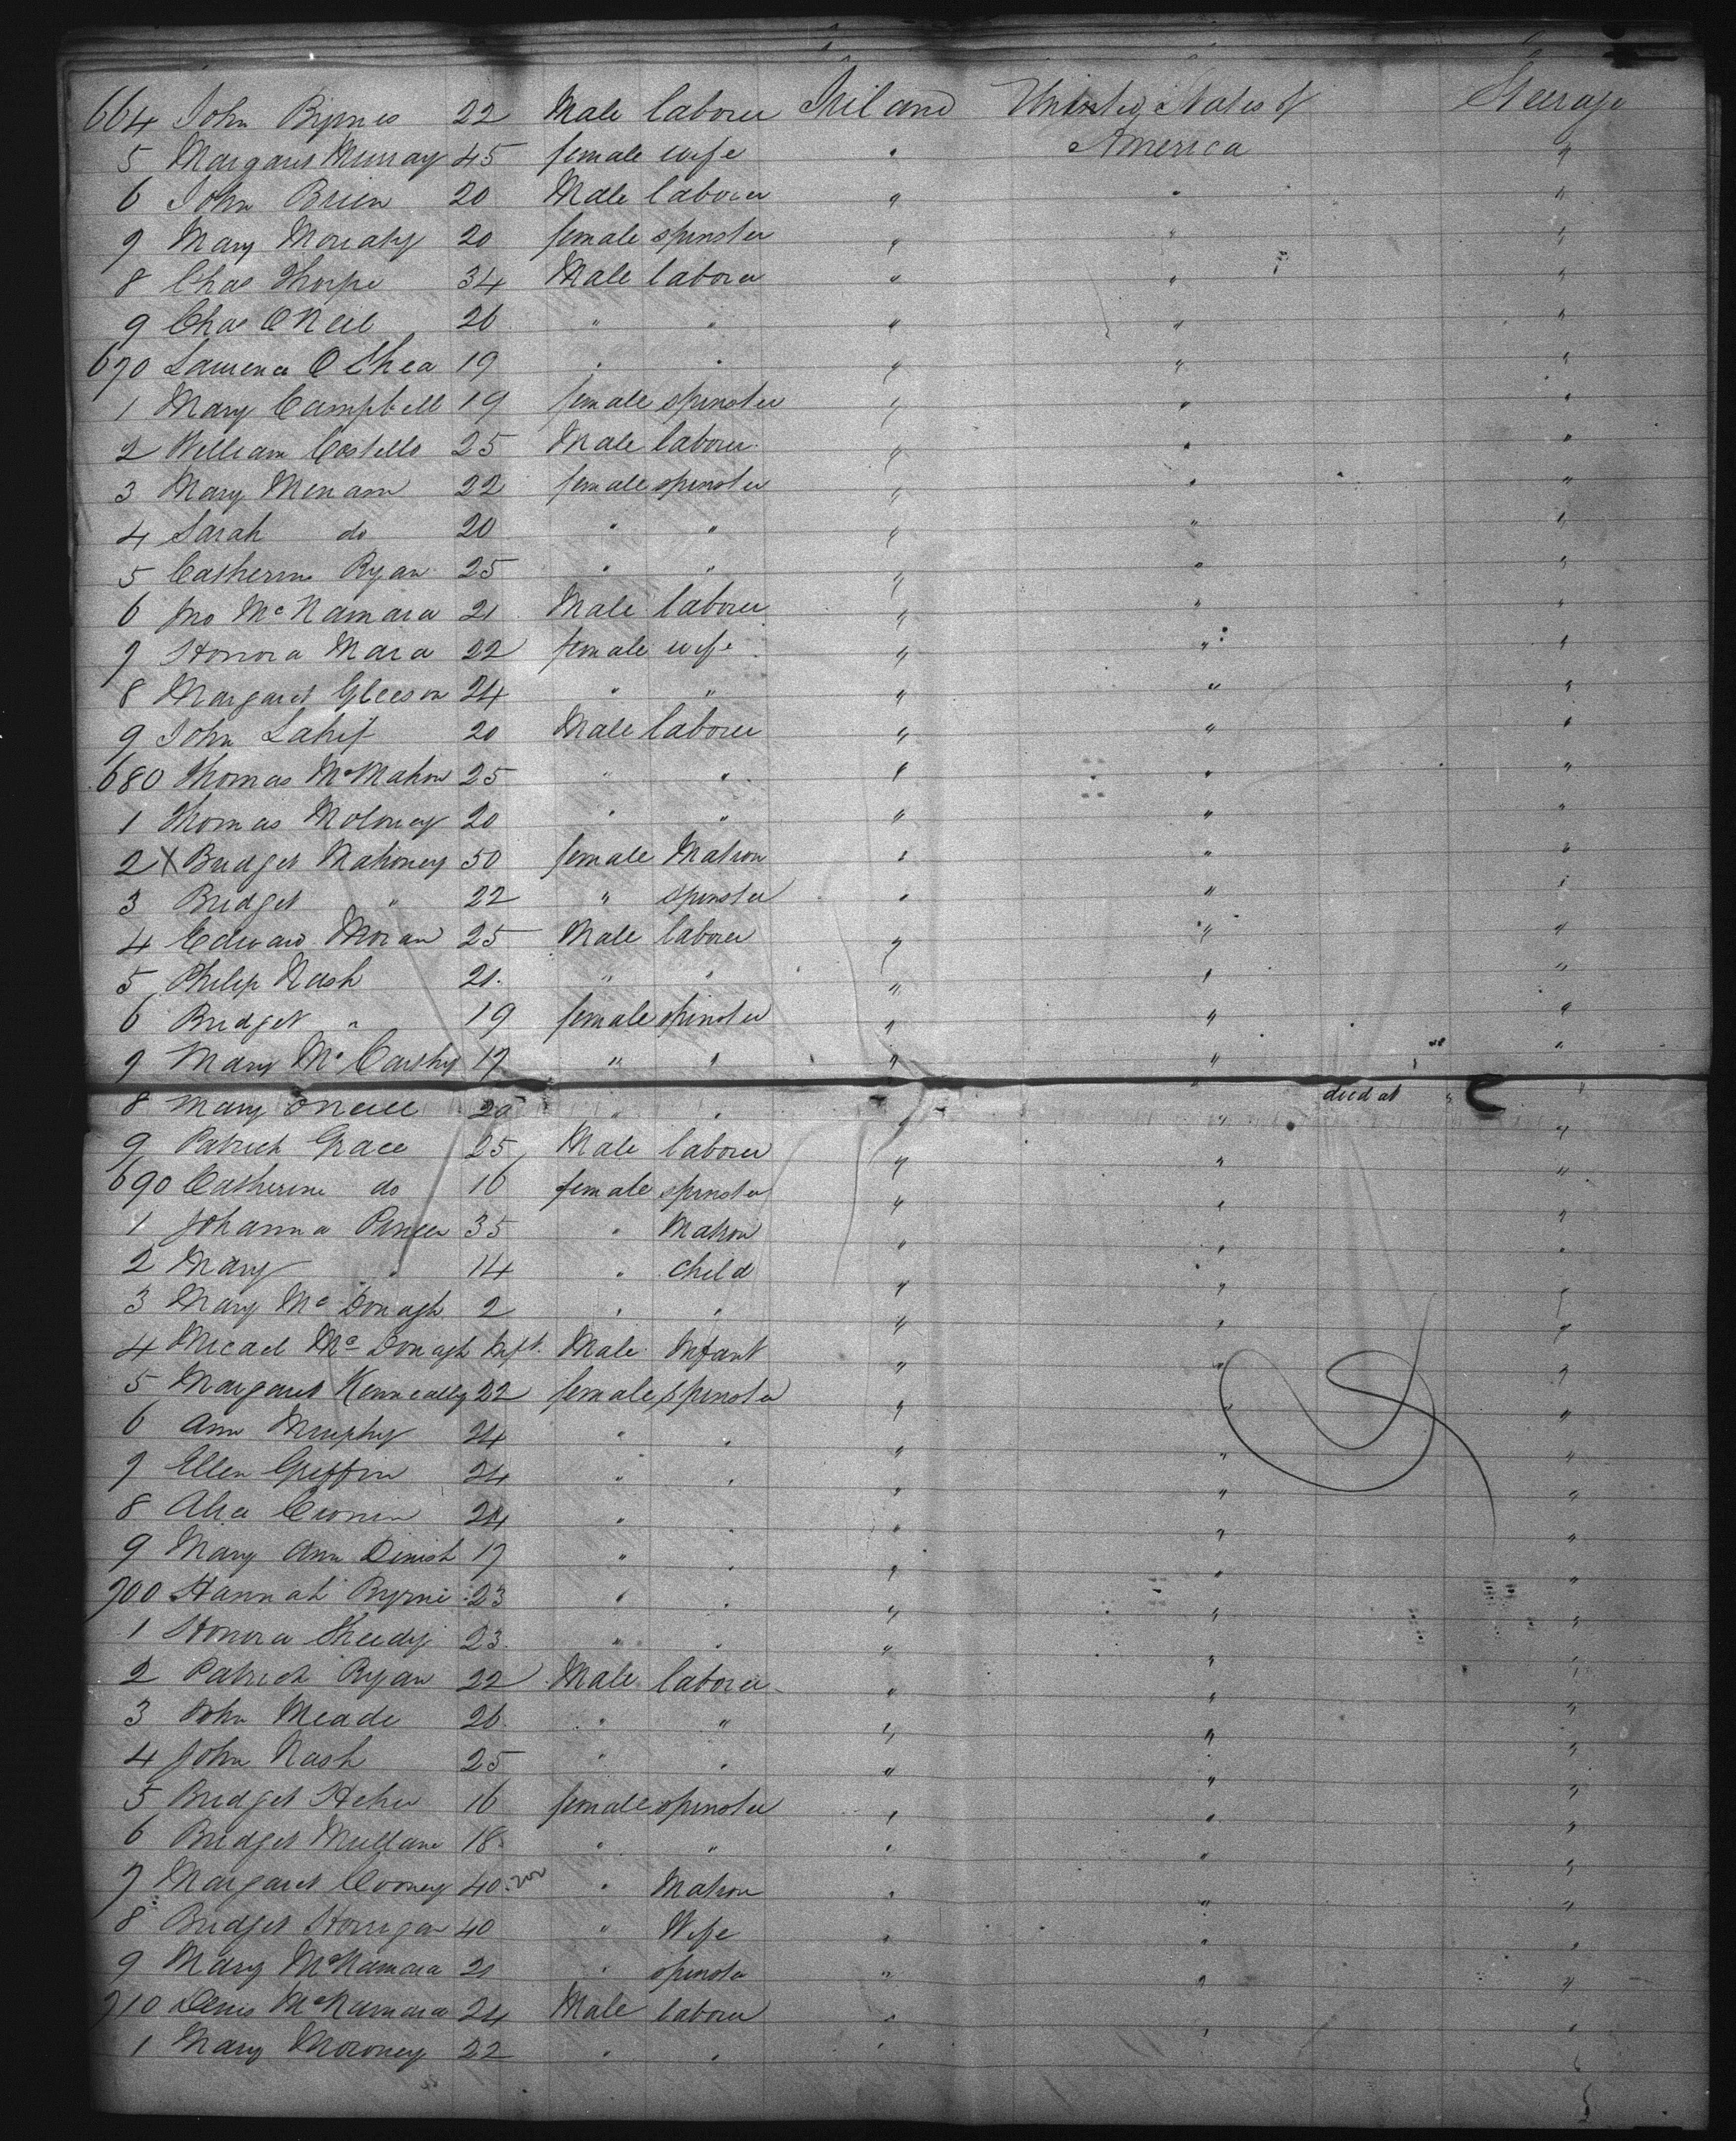 664 John Byrnes 22 Male laborer Ireland United States of Steerage
5 Margaret Murray 45 female wife " America "
6 John Brien 20 Male laborer " " "
7 Mary Moriaty 20 female spinster " " "
8 Chas Thorpe 34 Male laborer " " "
9 Chas O Neil 26 " " " " "
670 Laurence O Shea 19 " " " " "
1 Mary Campbell 19 female spinster " " "
2 William Costello 25 Male laborer " " "
3 Mary Menam 22 female spinster " " "
4 Sarah do 20 " " " " "
5 Catherine Ryan 25 " " " " "
6 Jno McNamara 21 Male laborer " " "
7 Honora Mara 22 female wife " " "
8 Margaret Gleeson 24 " " " " "
9 John Lahif 20 Male laborer " " "
680 Thomas McMahon 25 " " " " "
1 Thomas Moloney 20 " " " " "
2 X Bridget Mahoney 50 female Matron " " "
3 Bridget " 22 " spinster " " "
4 Edward Moran 25 Male laborer " " "
5 Philip Nash 21 " " " " "
6 Bridget " 19 female spinster " " "
7 Mary McCarthy 17 " " " " "
died at
8 Mary O Neill 20 " " " " "
9 Patrick Grace 25 Male laborer " " "
690 Catherine do 16 female spinster " " "
1 Johanna 35 " Matron " " "
2 Mary " 14 " child " " "
3 Mary McDonagh 2 " " " " "
4 Micael McDonagh Inft. Male Infant " " "
5 Margaret Kenneally 22 female spinster " " "
6 Ann Murphy 24 " " " " "
7 Ellen Griffin 24 " " " " "
8 Cronin 24 " " " " "
9 Mary Ann Dinish 17 " " " " "
700 Hannah Byrne 23 " " " " "
1 Honora Sheedy 23 " " " " "
2 Patrick Ryan 22 Male laborer " " "
3 John Meade 26 " " " " "
4 John Nash 25 " " " " "
5 Bridget Heher 16 female spinster " " "
6 Bridget Mullane 18 " " " " "
7 Margaret Cooney 40 " Matron " " "
8 Bridget Horrigan 40 " Wife " " "
9 Mary McNamara 21 " spinster " " "
710 Denis McNamara 24 Male laborer " " "
1 Mary Moroney 22 " " " " "